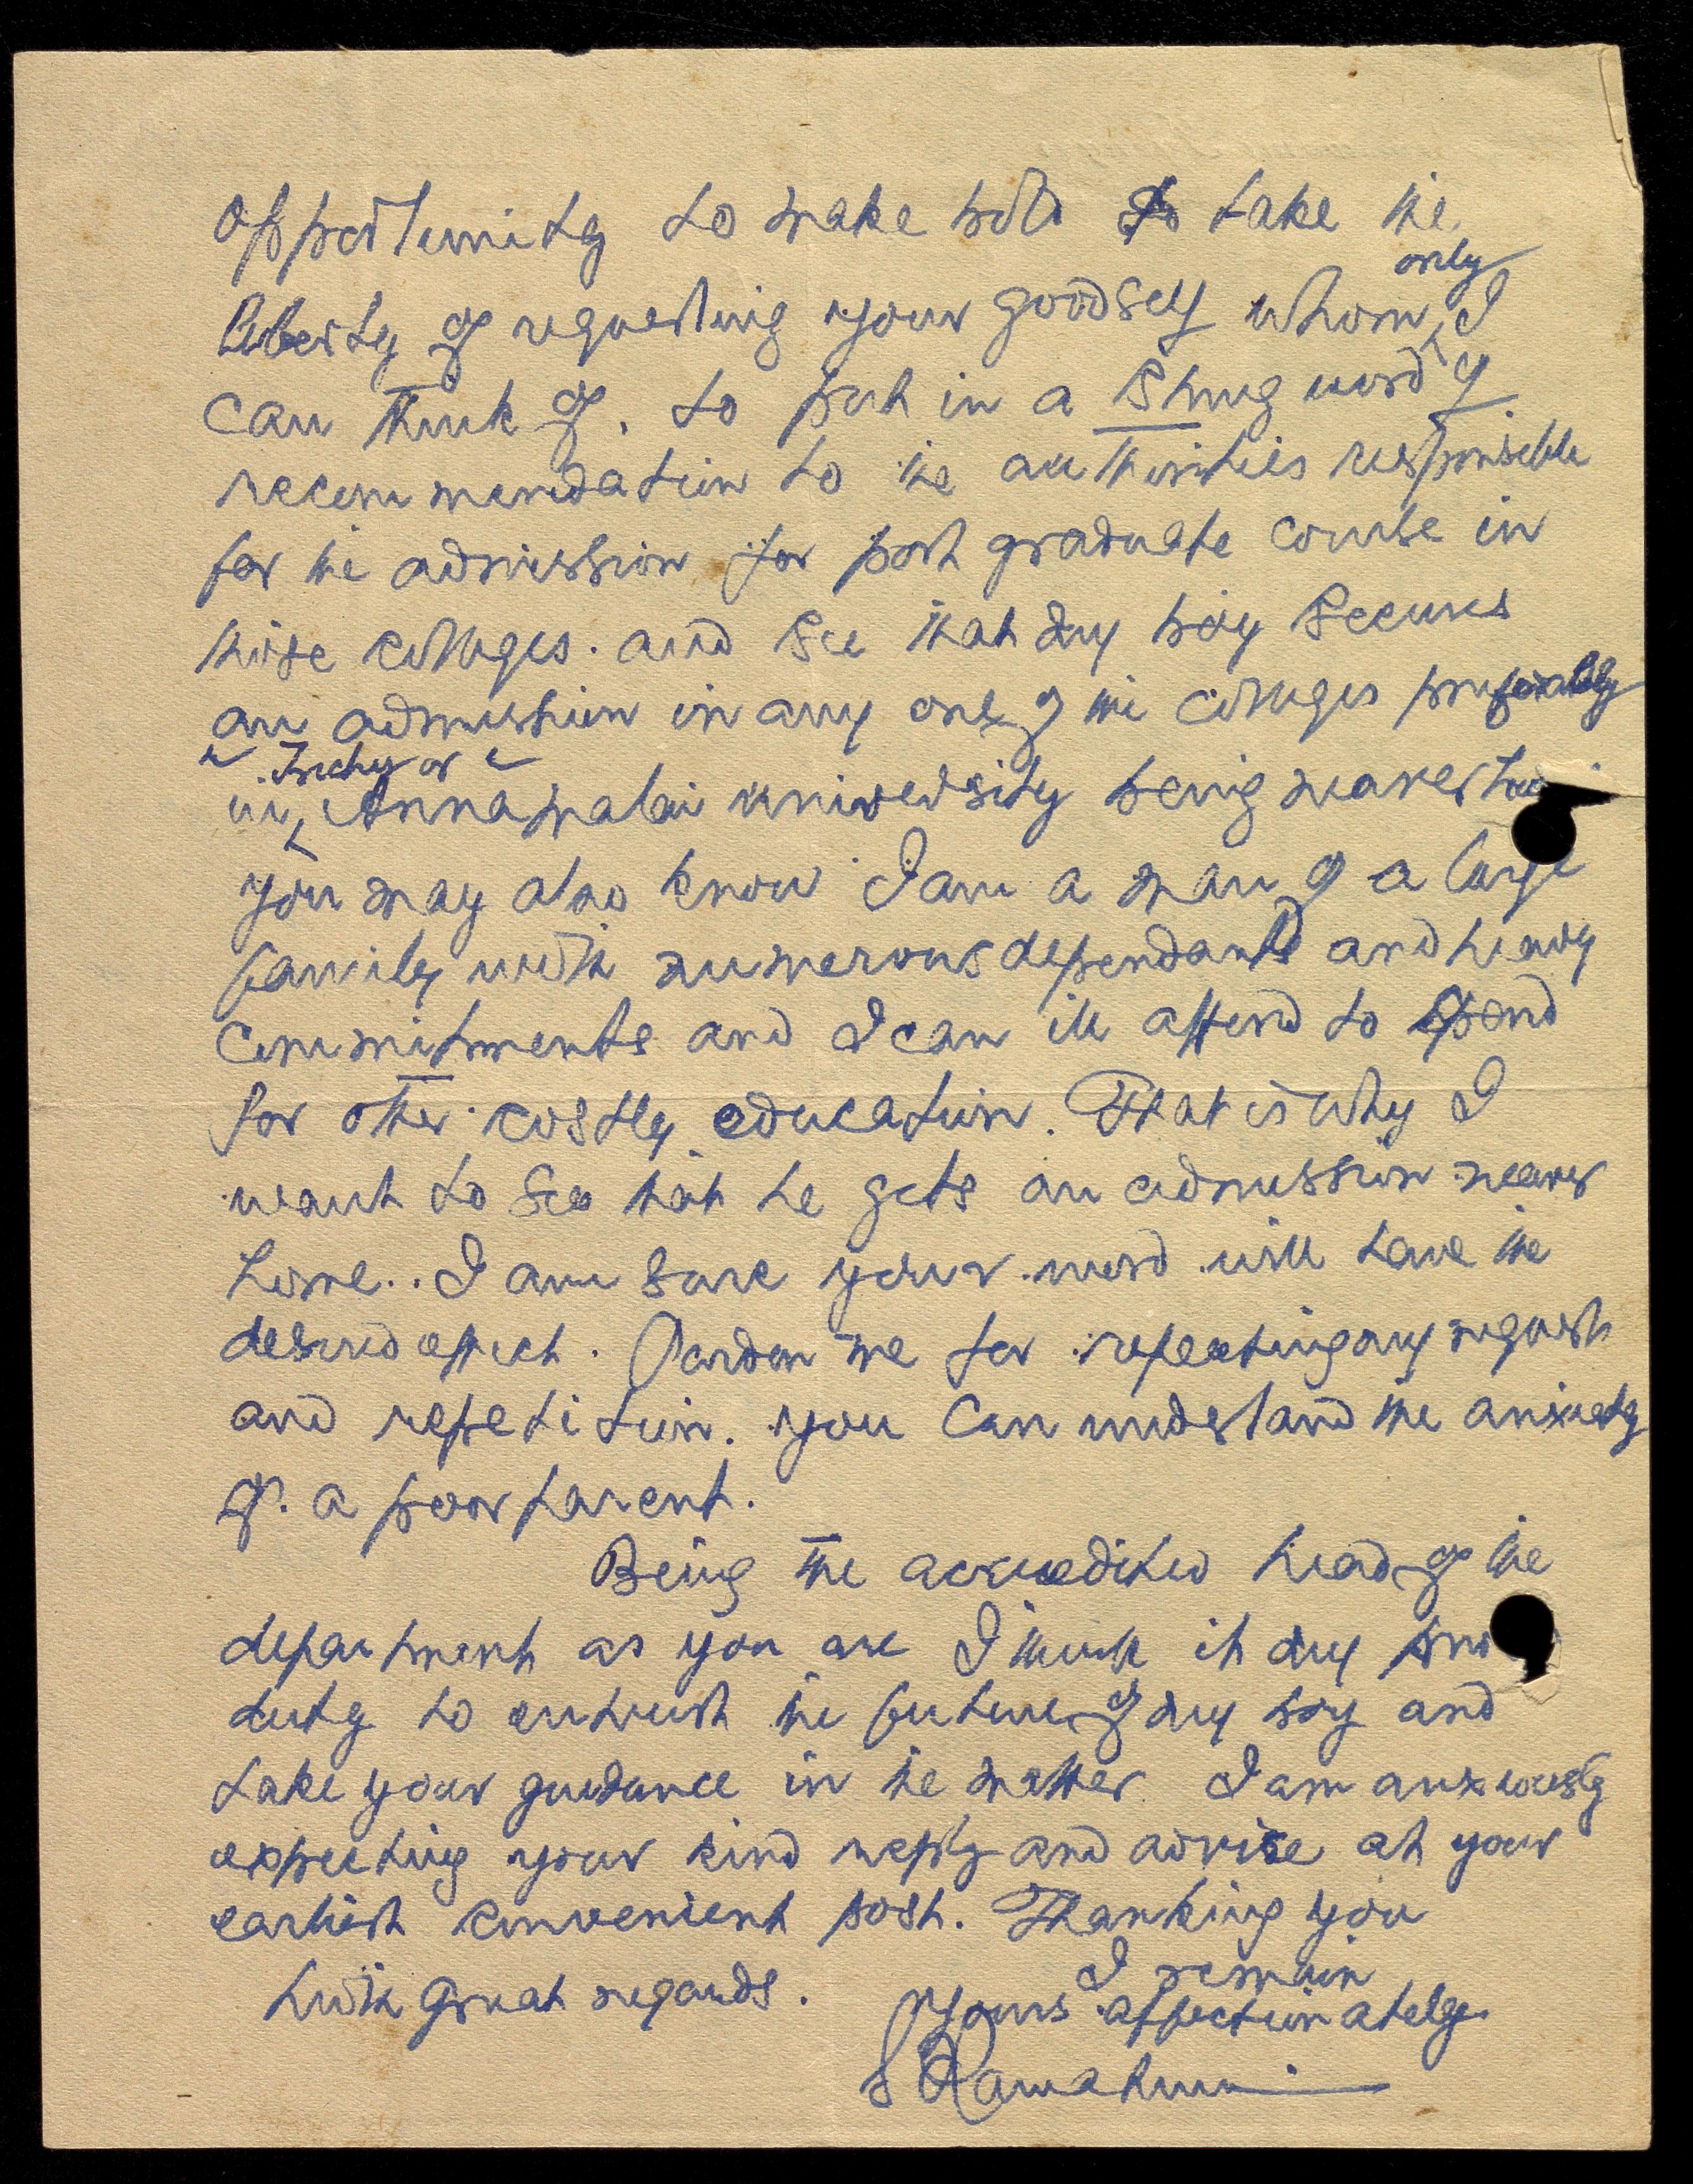 opportunity to make bold to take the
liberty of requesting your goodself whom only I
can think of, to put in a strong word of
recommendation to the authorities responsible
for the admission for post graduate course in
those colleges. and see that my boy secures
an admission in any one of the colleges preferably
in Trichy or Annamalai university being nearer
you may also know I am a man of a large
family with numerous dependants and heavy
commitments and I can ill afford to spend
for other costly education. That is why I
want to see that he gets an admission nearer
home.. I am sure your word will have the
desired effect. Pardon me for repeating my request
and repetition. you can understand the anxiety
of a poor parent.
Being the accredited head of the
department as you are I think it my
duty to entrust the future of my boy and
take your guidance in the matter. I am anxiously
expecting your kind reply and advise at your
earliest convenient post. Thanking you
I remain
with great regards.
Yours affectionately